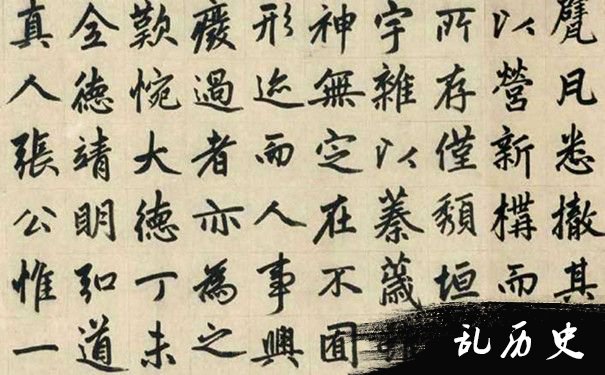 甓凡悉撤其
以營新構而
所存僅頹垣
宇雜以蓁薉
神無定在不囿
形迹而人事興
廢過者亦為之
歎惋大德丁未
全德靖明弘道
真人張公惟一
乱历史